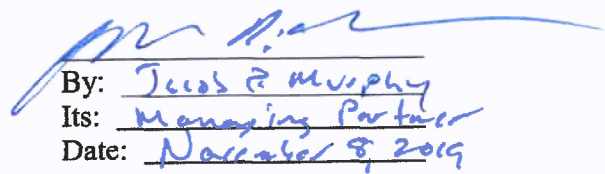 By: Jacob P Murphy
Its: Managing Partner
Date: November 8, 2019